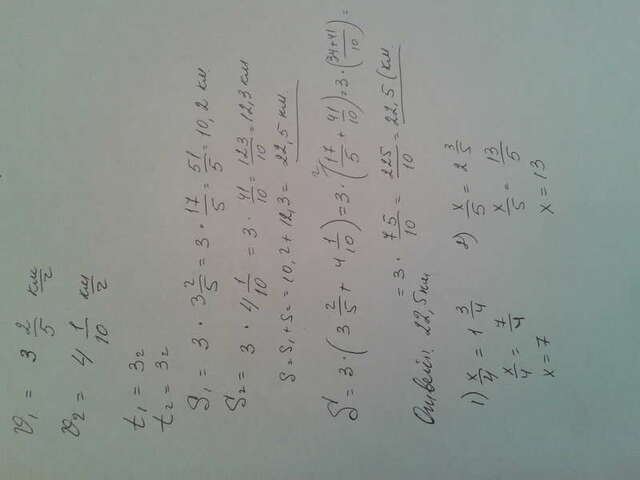 v₁ = 3 2/5 км/г
v₂ = 4 1/10 км/г
t₁ = 3г
t₂ = 3г
S₁ = 3 · 3 2/5 = 3 · 17/5 = 51/5 = 10,2 км
S₂ = 3 · 4 1/10 = 3 · 41/10 = 123/10 = 12,3 км
S = S₁ + S₂ = 10,2 + 12,3 = 22,5 км
S = 3 · (3 2/5 + 4 1/10) = 3 · (17/5 ² + 41/10) = 3 · (34+41/10) =
= 3 · 75/10 = 225/10 = 22,5 (км
Ответ: 22,5 км
1) x/4 = 1 3/4 2) x/5 = 2 3/5
x/4 = 7/4 x/5 = 13/5
x = 7 x = 13